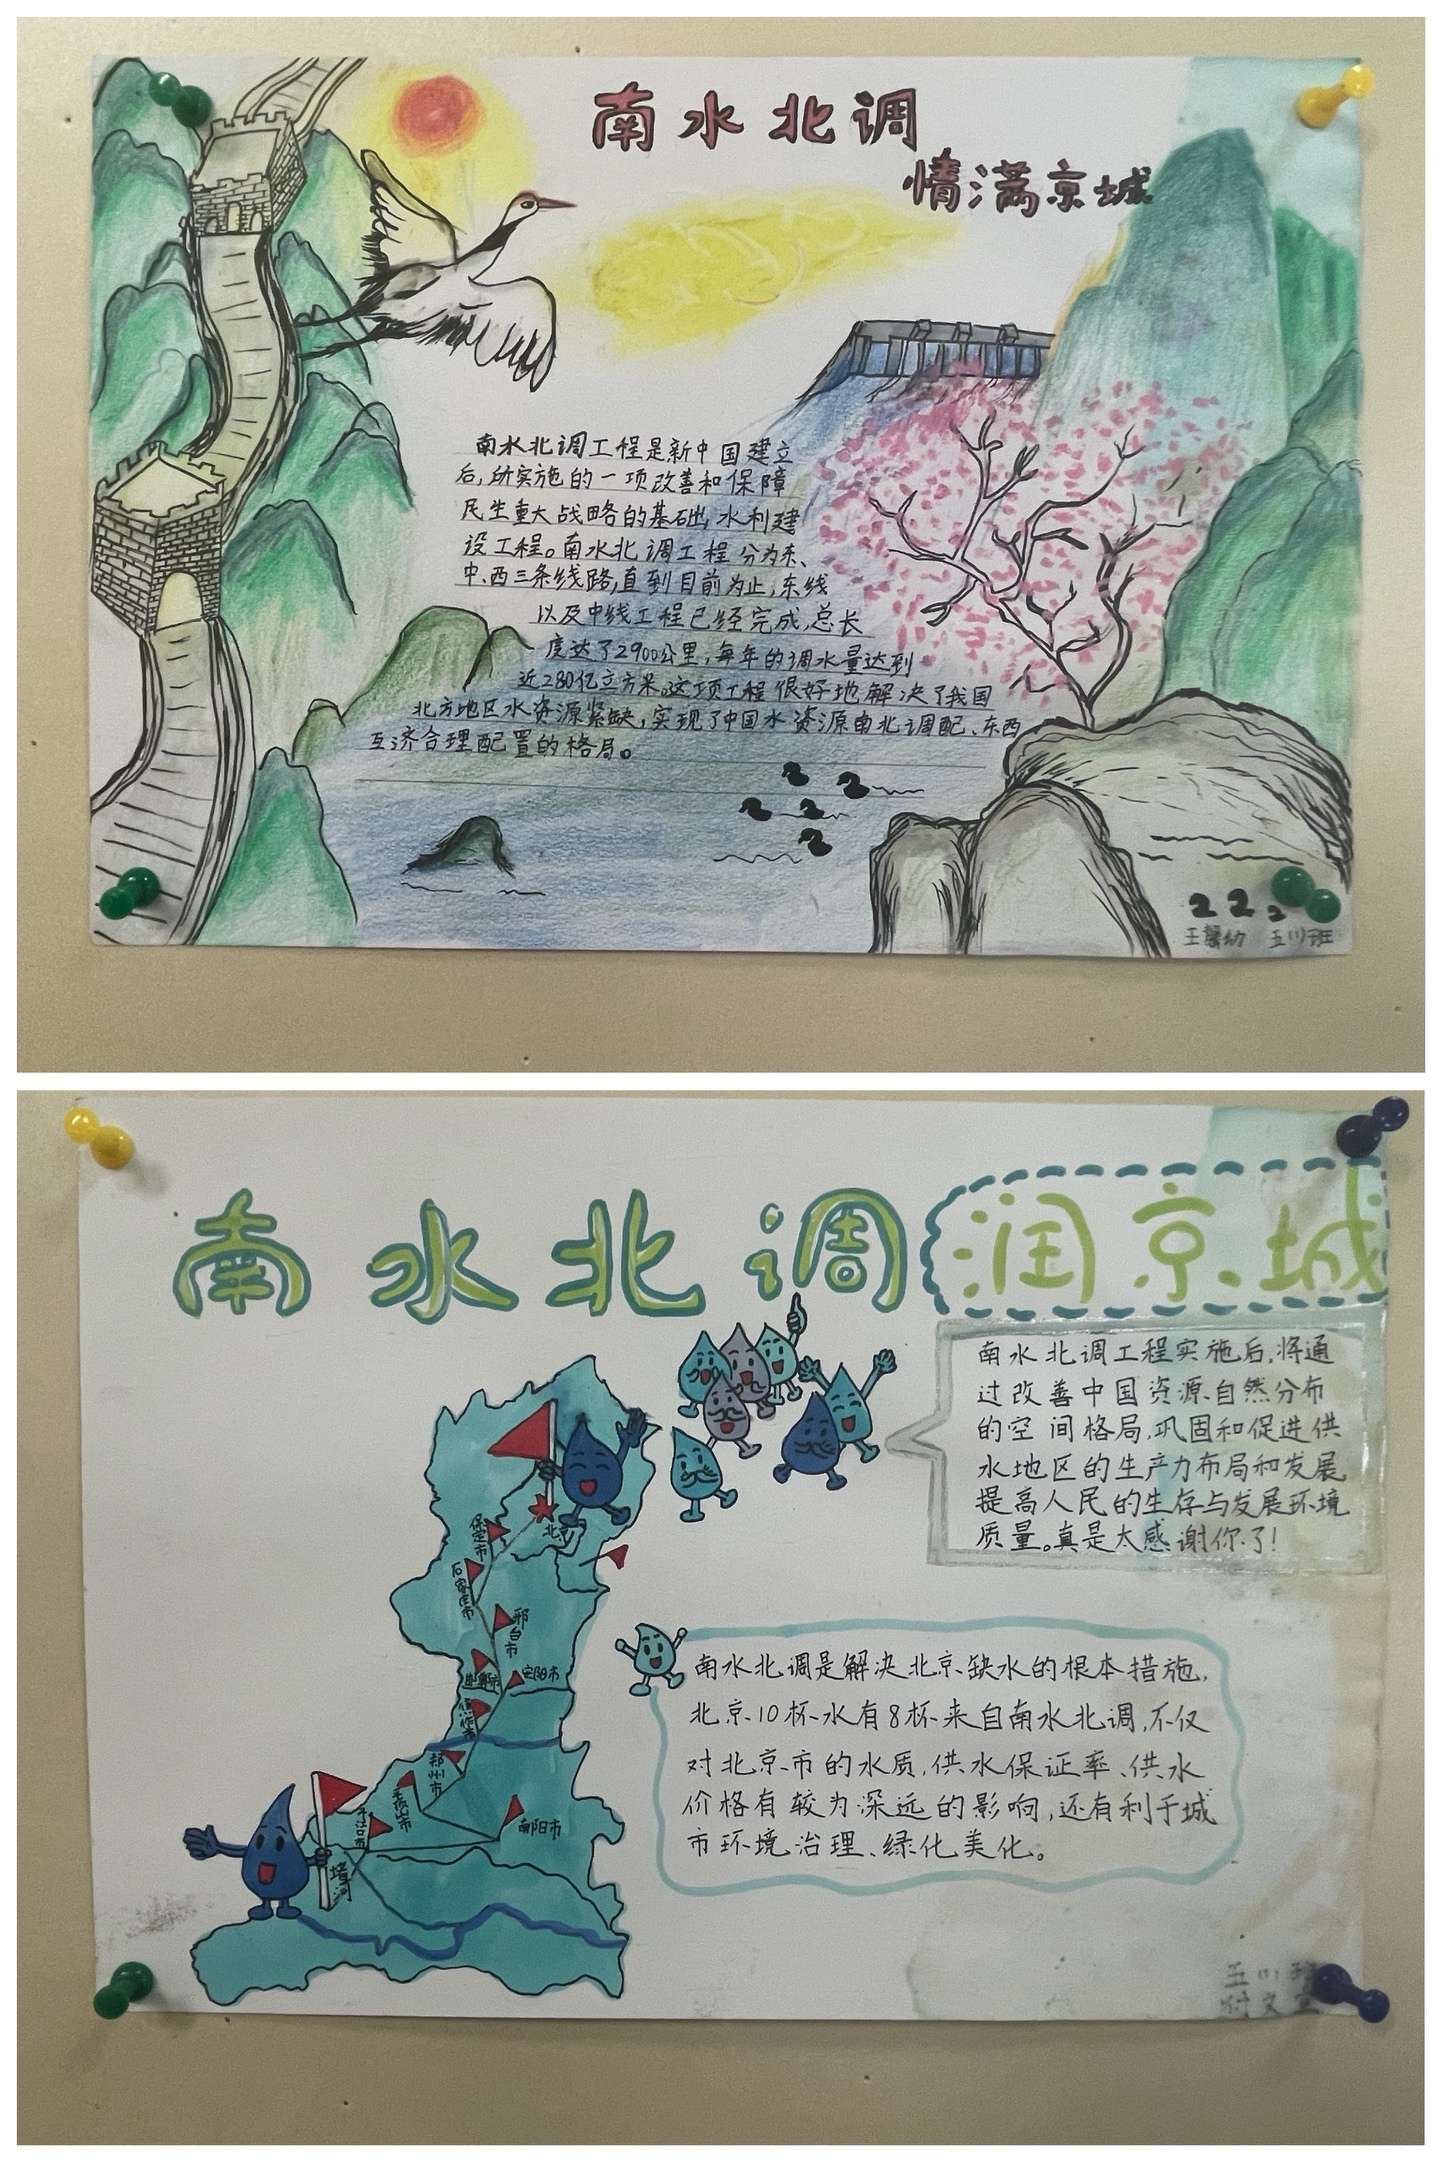 南水北调
情满京城
南水北调工程是新中国建立
后,所实施的一项改善和保障
民生重大战略的基础水利建
设工程。南水北调工程分为东、
中、西三条线路,直到目前为止,东线
以及中线工程已经完成,总长
度达了2900公里,每年的调水量达到
近280亿立方米。这项工程很好地解决了我国
北方地区水资源紧缺,实现了中国水资源南北调配、东西
互济合理配置的格局。
五(1)班
南水北调 润京城
南水北调工程实施后,将通
过改善中国资源、自然分布
的空间格局,巩固和促进供
水地区的生产力布局和发展
提高人民的生存与发展环境
质量。真是太感谢你了!
北京
保定市
石家庄市
邢台市
邯郸市
安阳市
焦作市
郑州市
平顶山市
南阳市
南水北调是解决北京缺水的根本措施,
北京10杯水有8杯来自南水北调,不仅
对北京市的水质,供水保证率、供水
价格有较为深远的影响,还有利于城
市环境治理、绿化美化。
五(1)班